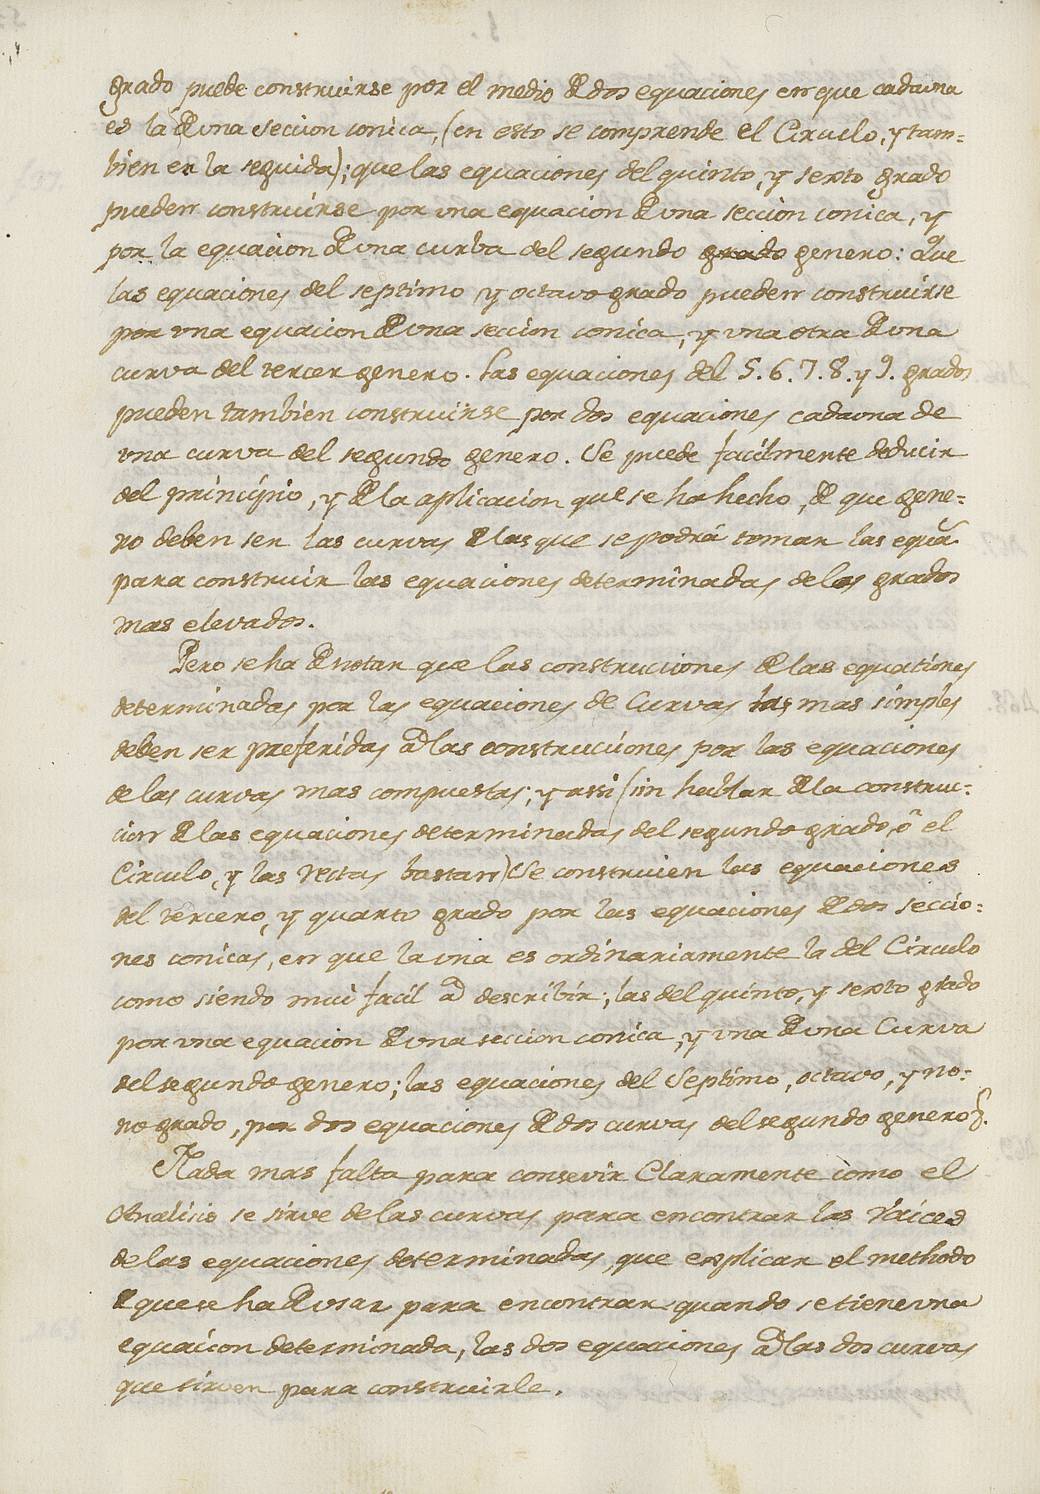 grado puede construirse por el medio de dos equaciones en que cadauna
es la de una seccion conica, (en esto se comprende el Circulo, y tam=
bien en la seguida); que las equaciones del quinto, y sexto grado
pueden construirse por una equacion de una seccion conica, y
por la equacion de una curba del segundo grado genero: Que
las equaciones del septimo y octavo grado pueden construirse
por una equacion de una seccion conica, y una otra de una
curva del tercer genero. Las equaciones del 5. 6. 7. 8. y 9. grados
pueden tambien construirse por dos equaciones cadauna de
una curva del segundo genero. Se puede facilmente deducir
del principio, y de la aplicacion que se ha hecho, de que gene=
ro deben ser las curvas de las que se podrá tomar las equa.s
para construir las equaciones determinadas de los grados
mas elevados.
Pero se ha de notar que las construciones de las equationes
determinadas por las equaciones de Curvas las mas simples
deben ser preferidas ad las construcciones por las equaciones
de las curvas mas compuestas; y assi (sin hablar de la construc=
cion de las equaciones determinadas del segundo grado, ò el
Circulo, y las rectas bastan) se construien las equaciones
del tercero, y quarto grado por las equaciones de dos seccio=
nes conicas, en que la una es ordinariamente la del Circulo
como siendo mui facil ad describir; las del quinto, y sexto grado
por una equacion de una seccion conica, y una de una Curva
del segundo genero; las equaciones del Septimo, octavo, y no=
no grado, por dos equaciones de dos curvas del segundo genero &.
Nada mas falta para consevir Claramente como el
Analisis se sirve de las curvas para encontrar las raices
de las equaciones determinadas, que explicar el methodo
de que se ha de usar para encontrar quando se tiene una
equaicon determinada, las dos equaciones ad las dos curvas
que sirven para construirle.